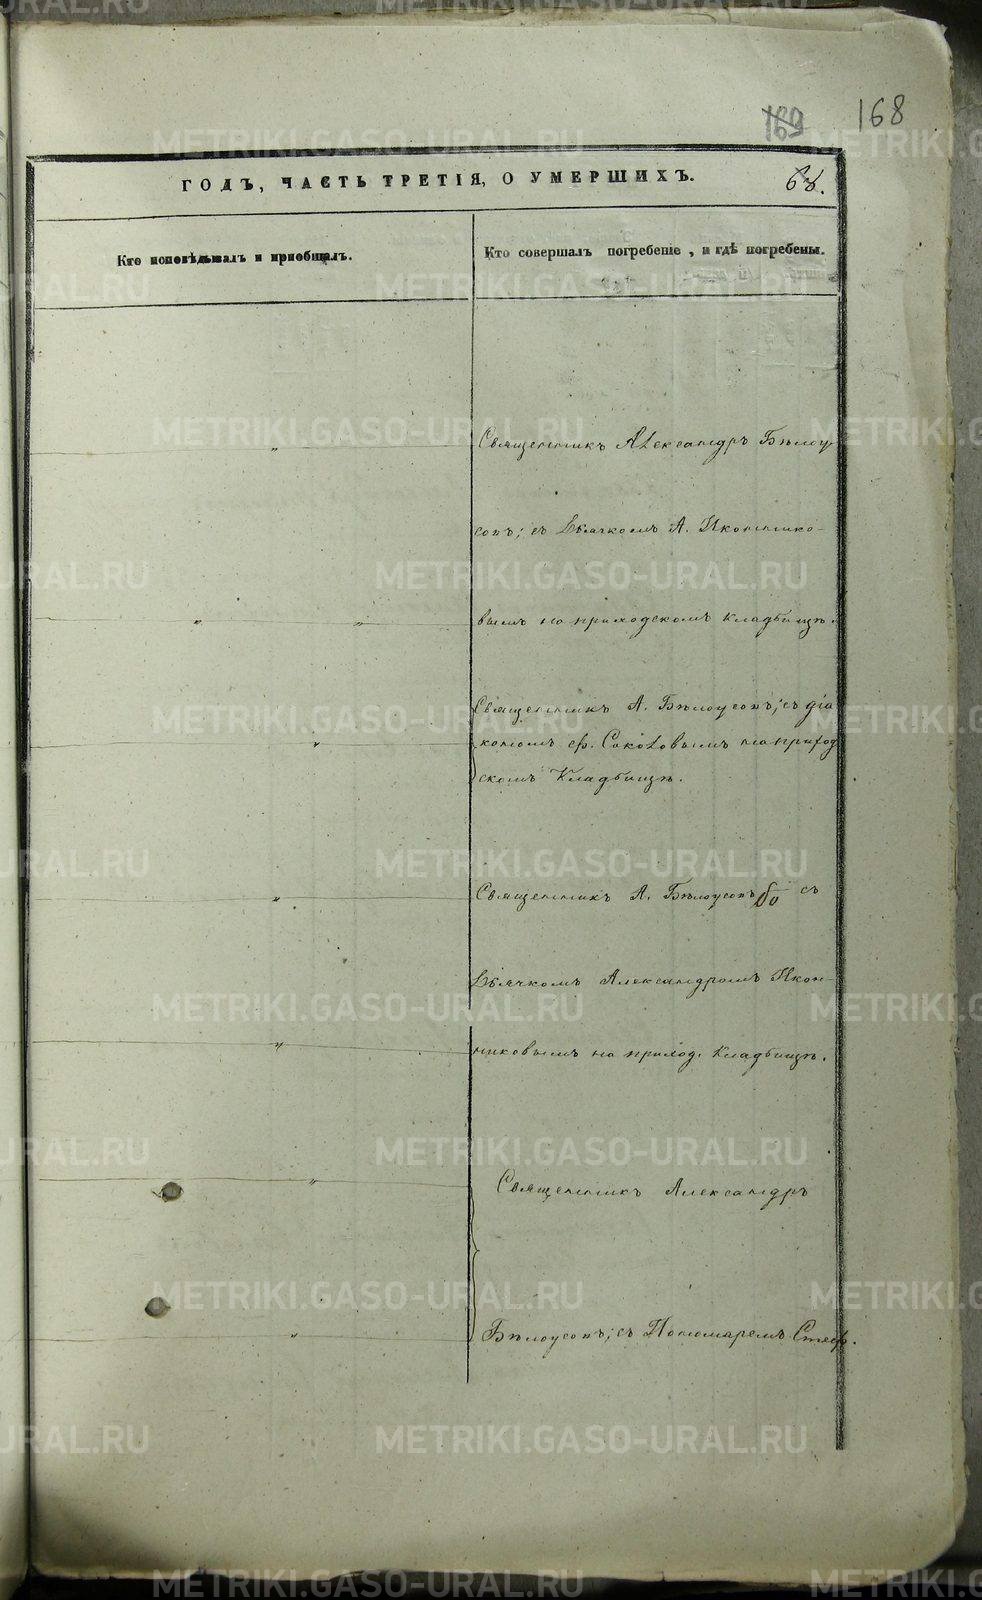 169 168
ГОДЪ, ЧАСТЬ ТРЕТІЯ, О УМЕРШИХЪ. 68.
Кто исповѣдывалъ и приобщалъ.
Кто совершалъ погребеніе, и гдѣ погребены.
Священникъ Александръ Бѣлоу
совъ; съ Дьячкомъ А. Иконнико-
вымъ на приходскомъ кладбищѣ.
Священникъ А. Бѣлоусовъ; съ діа
кономъ Ф. Соколовымъ на приход
скомъ Кладбищѣ.
Священникъ А. Бѣлоусовъ съ
Дьячкомъ Александромъ Икон-
никовымъ на приход. Кладбищѣ.
Священникъ Александръ
Бѣлоусовъ; съ Пономаремъ Стеф.
METRIKI.GASO-URAL.RU